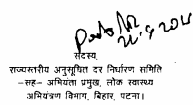 21.9.2021
सदस्य,
राज्यस्तरीय अनुसूचित दर निर्धारण समिति
-सह- अभियंता प्रमुख, लोक स्वास्थ्य
अभियंत्रण विभाग, बिहार, पटना।